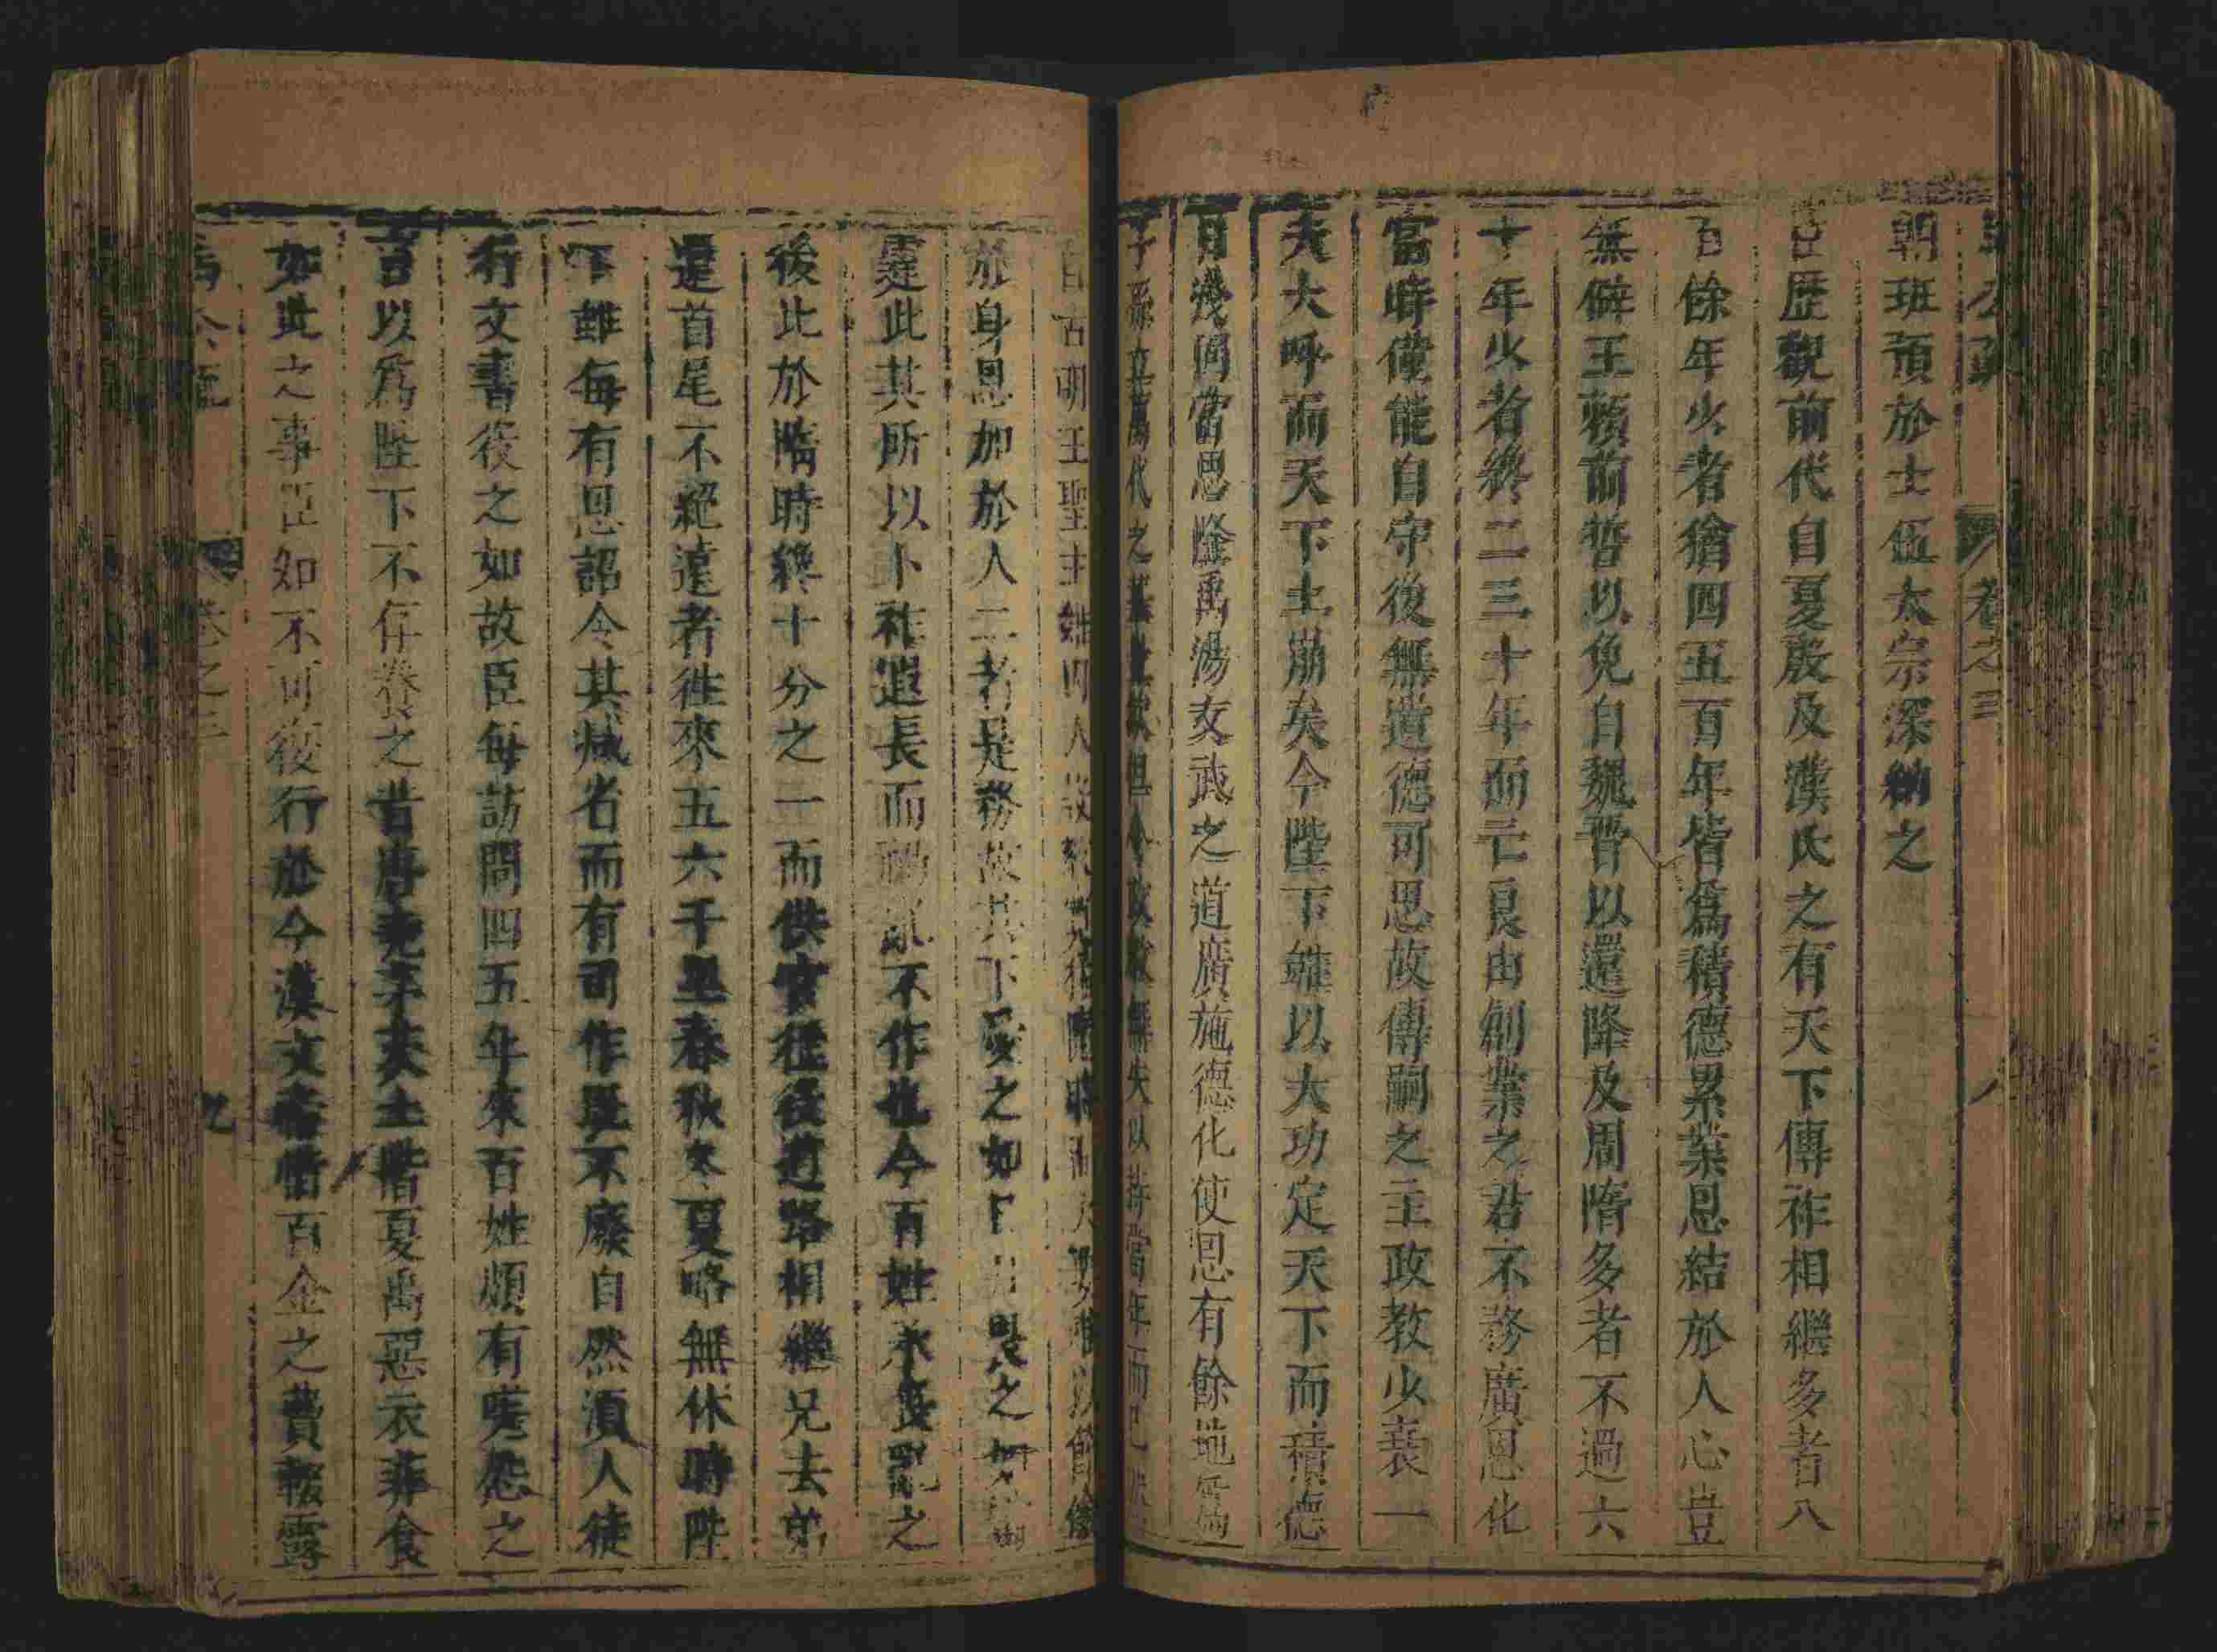 卷之三
八
朝班預於士伍太宗深納之
言歷觀前代自夏殷及漢氏之有天下傳祚相繼多者八
百餘年少者猶四五百年皆爲積德累業恩結於人心豈
無僻王賴前哲以免自魏晋以還降及周隋多者不過六
十年少者終二三十年而亡良由創業之君不務廣恩化
當時僅能自守後無遺德可思故傳嗣之主政教少衰一
夫大呼而天下土崩矣今陛下雖以大功定天下而積德
日淺固當思隆禹湯文武之道廣施德化使恩有餘地爲
子孫立萬代之基豈欲但令政教無失以持當年而已
自古明王聖主雖因人設教寬猛隨時而大要惟以節儉
於身恩加於人二者是務故其下愛之如日畏之如
霆此其所以卜祚遐長而禍亂不作也今百姓承喪亂之
後比於隋時纔十分之一而供官徭役道路相繼兄去弟
還首尾不絕遠者往來五六千里春秋冬夏略無休時陛
下雖每有恩詔令其减省而有司作旣不廢自然湏人徒
行文書役之如故臣每訪問四五年來百姓頗有嗟怨之
言以爲陛下不存養之昔唐堯茅茨土階夏禹惡衣菲食
如此之事臣知不可復行於今漢文帝惜百金之費輟露
卷之三
九